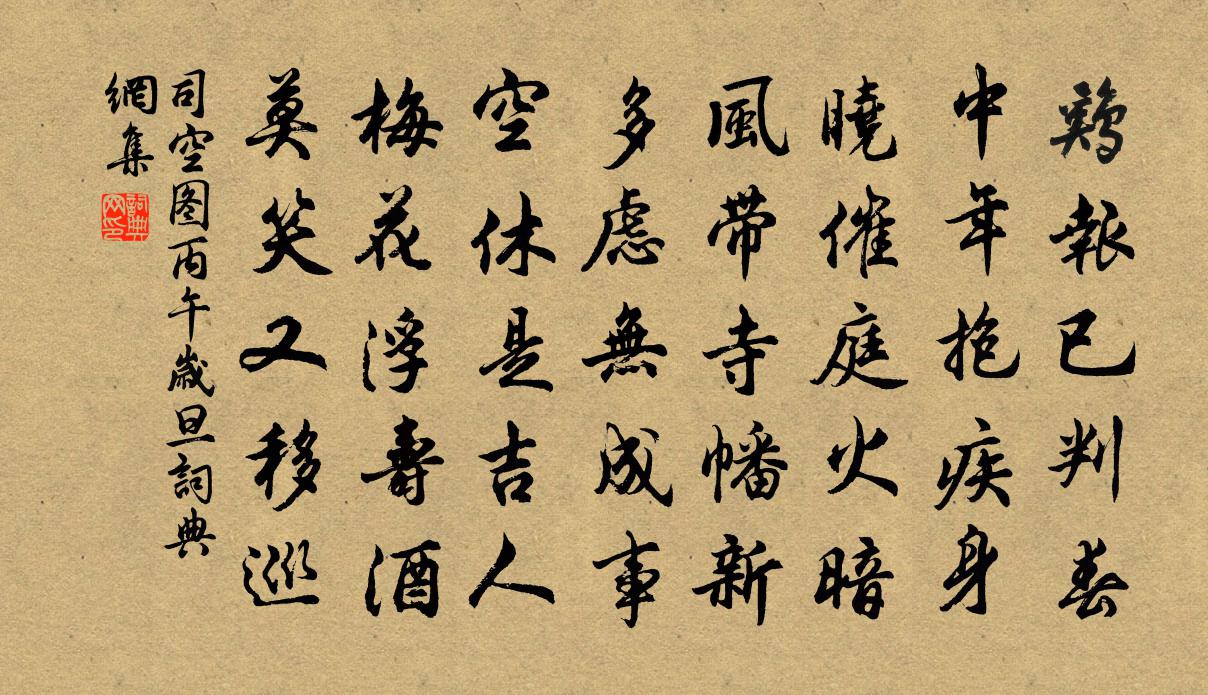 鷄報已判春
中年抱疾身
曉催庭火暗
風帶寺幡新
多慮無成事
空休是吉人
梅花浮壽酒
莫笑又移巡
司空图丙午歲旦詞典
網集
詞典网印